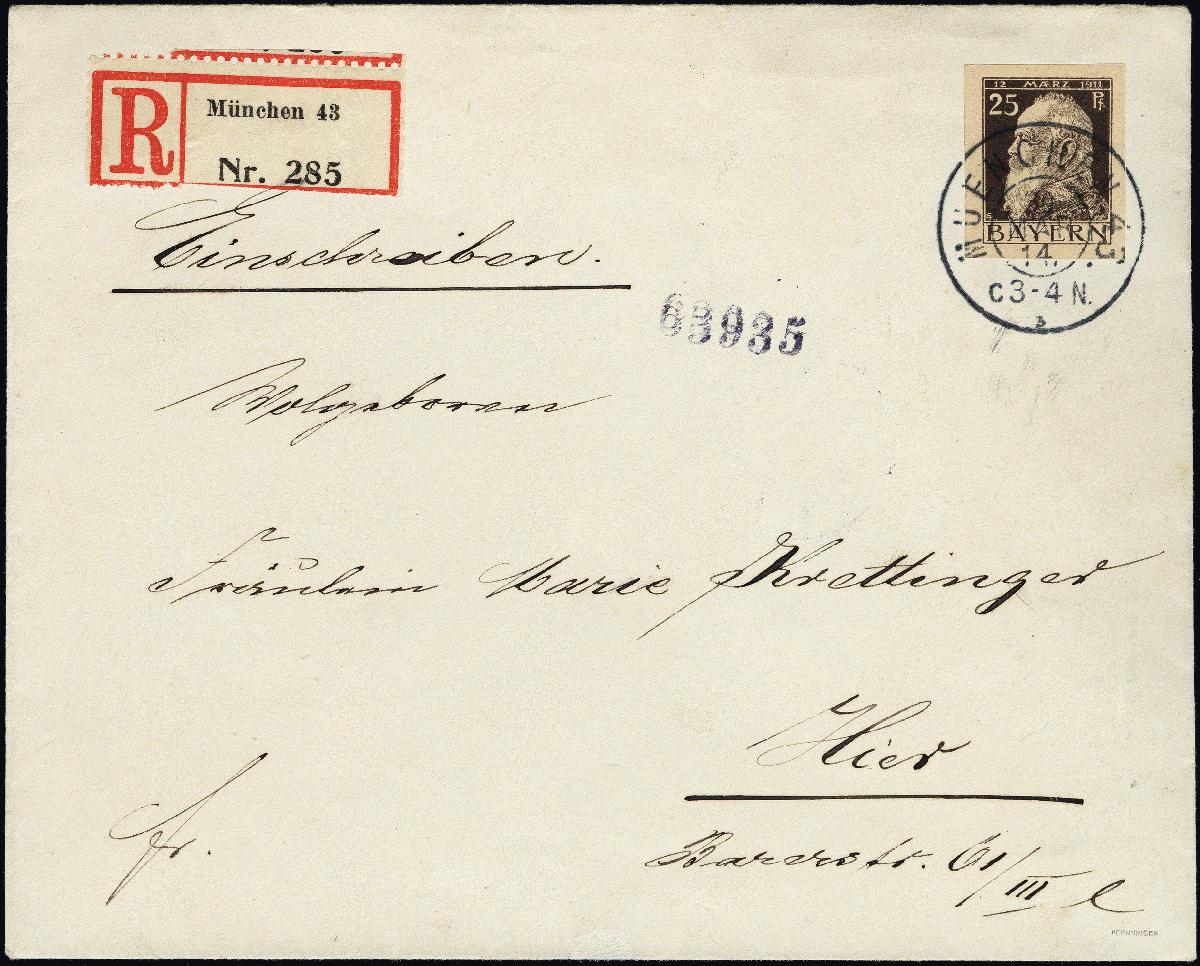 R
München 43
Nr. 285
12 MÆRZ 1911
25 Pf.
BAYERN
MUENCHEN
14.
C3-4 N.
Einschreiben.
Wolgeboren
Fräulein Marie Krettinger
Hier
Barerstr. 61/III l
fr.
PFENNINGER